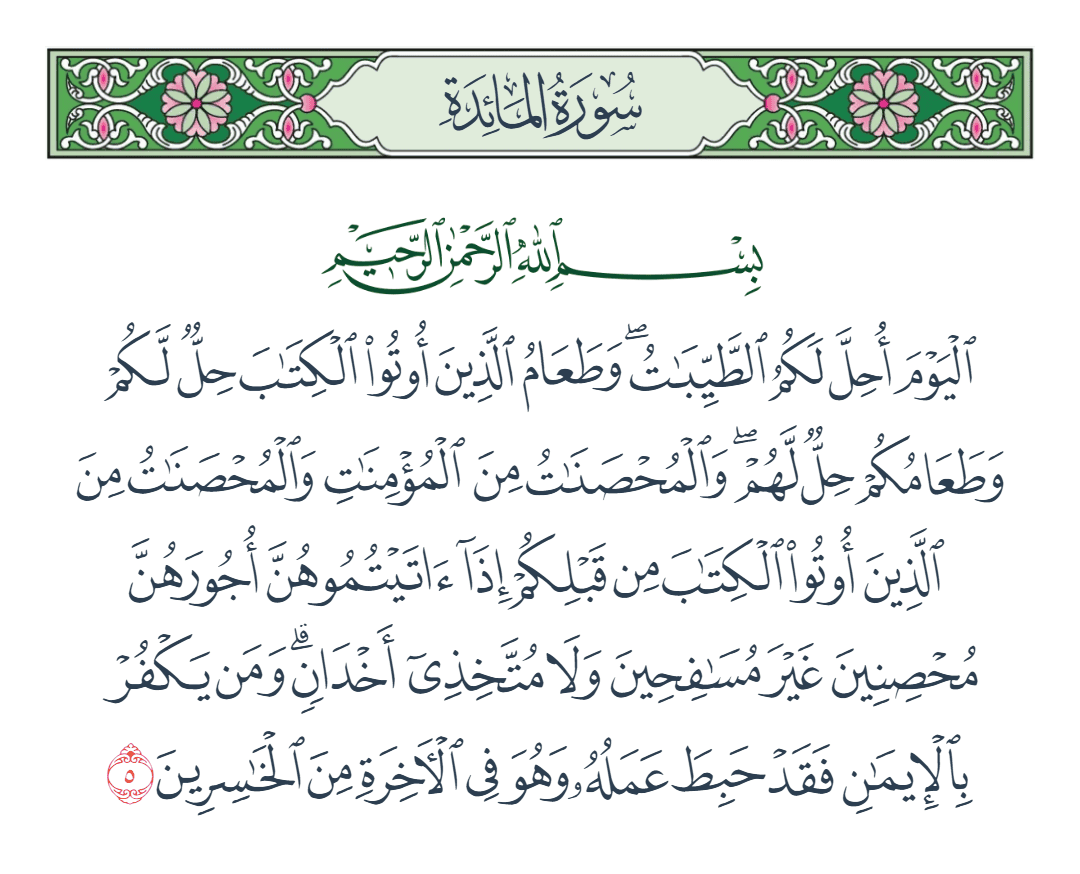 سُورَةُ المَائِدَةِ
بِسْمِ ٱللَّهِ ٱلرَّحْمَٰنِ ٱلرَّحِيمِ
ٱلْيَوْمَ أُحِلَّ لَكُمُ ٱلطَّيِّبَٰتُ ۖ وَطَعَامُ ٱلَّذِينَ أُوتُوا۟ ٱلْكِتَٰبَ حِلٌّ لَّكُمْ
وَطَعَامُكُمْ حِلٌّ لَّهُمْ ۖ وَٱلْمُحْصَنَٰتُ مِنَ ٱلْمُؤْمِنَٰتِ وَٱلْمُحْصَنَٰتُ مِنَ
ٱلَّذِينَ أُوتُوا۟ ٱلْكِتَٰبَ مِن قَبْلِكُمْ إِذَآ ءَاتَيْتُمُوهُنَّ أُجُورَهُنَّ
مُحْصِنِينَ غَيْرَ مُسَٰفِحِينَ وَلَا مُتَّخِذِىٓ أَخْدَانٍ ۗ وَمَن يَكْفُرْ
بِٱلْإِيمَٰنِ فَقَدْ حَبِطَ عَمَلُهُۥ وَهُوَ فِى ٱلْءَاخِرَةِ مِنَ ٱلْخَٰسِرِينَ ٥